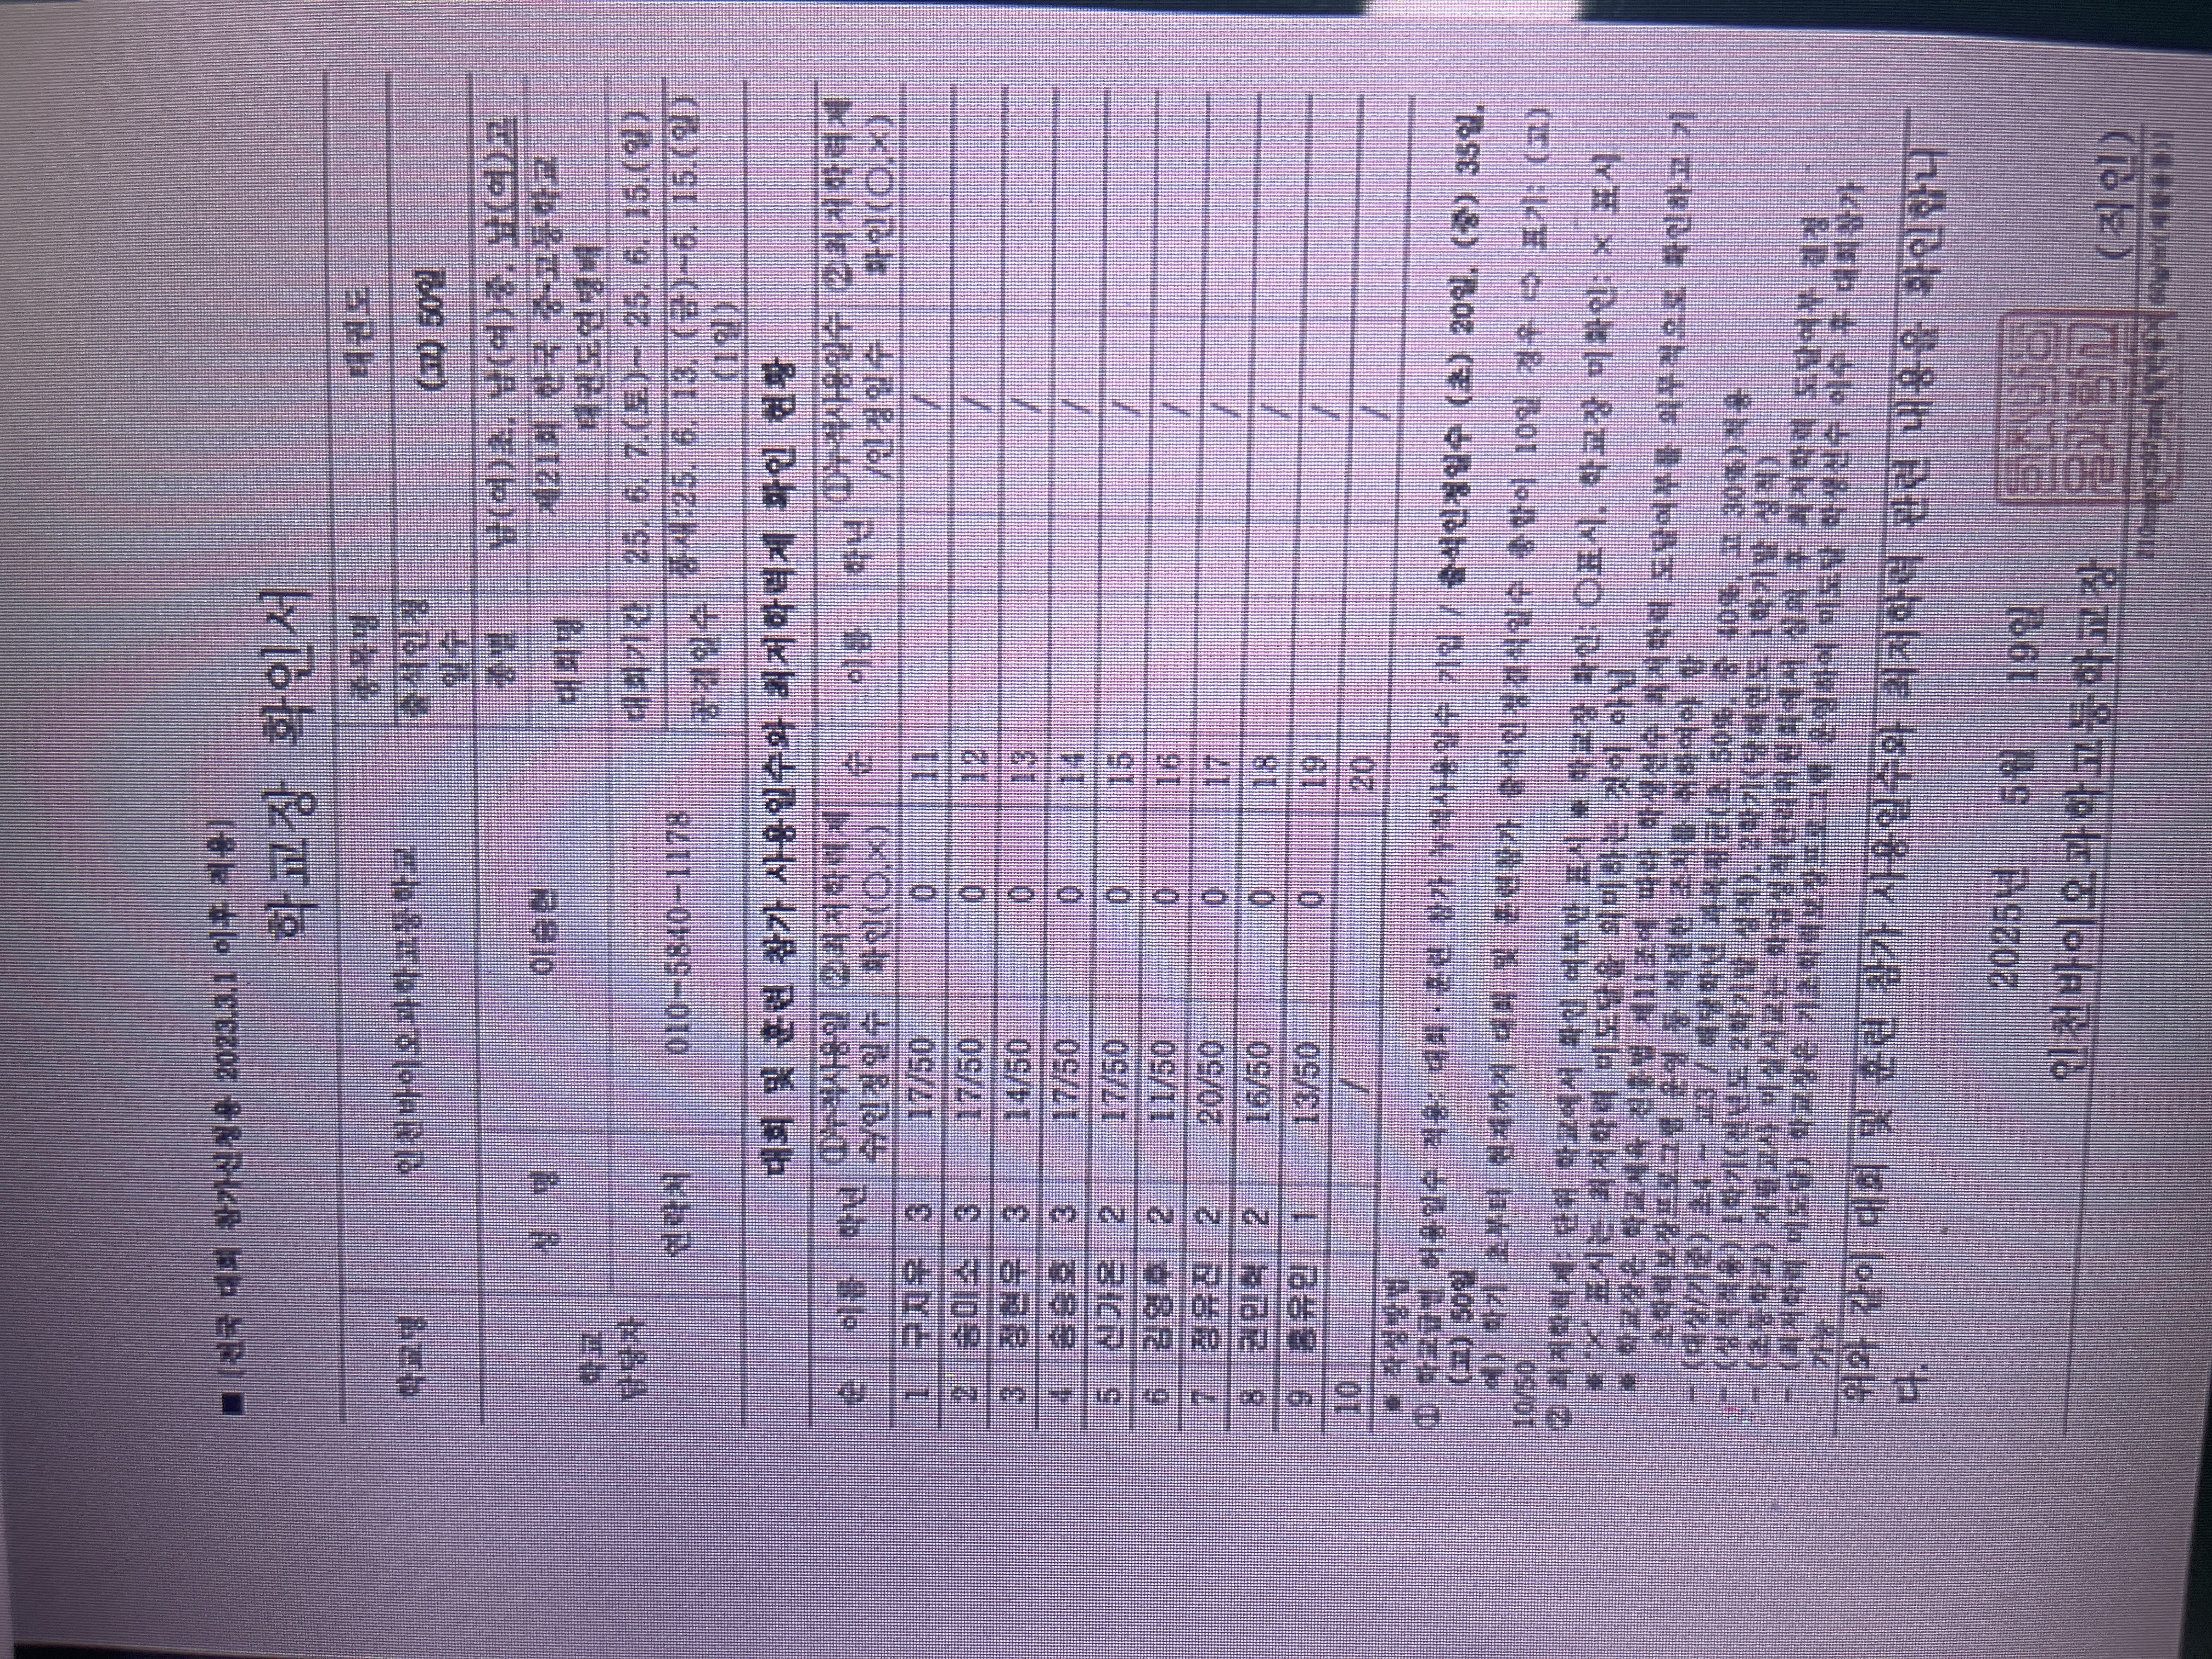 ■ [전국 대회 참가신청용 2023.3.1 이후 적용]
학교장 확인서
학교명 인천바이오과학고등학교 종목명 태권도
출석인정일수 (고) 50일
학교 담당자 성 명 이승현 종별 남(여)초, 남(여)중, 남(여)고
대회명 제21회 한국 중·고등학교 태권도연맹배
연락처 010-5840-1178 대회기간 25. 6. 7.(토)~ 25. 6. 15.(일)
공결일수 품새:25. 6. 13. (금)~6. 15.(일) (1일)
대회 및 훈련 참가 사용일수와 최저학력제 확인 현황
순 이름 학년 ①누적사용일수/인정일수 ②최저학력제 확인(○,×) 순 이름 학년 ①누적사용일수/인정일수 ②최저학력제 확인(○,×)
1 구지우 3 17/50 0 11 /
2 송미소 3 17/50 0 12 /
3 정현우 3 14/50 0 13 /
4 송승호 3 17/50 0 14 /
5 신가온 2 17/50 0 15 /
6 김영후 2 11/50 0 16 /
7 정유진 2 20/50 0 17 /
8 권민혁 2 16/50 0 18 /
9 홍유민 1 13/50 0 19 /
10 / 20 /
* 작성방법
① 학교급별 허용일수 적용: 대회·훈련 참가 누적사용일수 기입 / 출석인정일수 (초) 20일, (중) 35일,
(고) 50일
예) 학기 초부터 현재까지 대회 및 훈련참가 출석인정결석일수 총합이 10일 경우 ⇨ 표기: (고)
10/50
② 최저학력제: 단위 학교에서 확인 여부만 표시 * 학교장 확인: ○표시, 학교장 미확인: × 표시
* '×' 표시는 최저학력 미도달을 의미하는 것이 아님
* 학교장은 학교체육 진흥법 제11조에 따라 학생선수 최저학력 도달여부를 의무적으로 확인하고 기
초학력보장프로그램 운영 등 적절한 조치를 취하여야 함
- (대상/기준) 초4 ~ 고3 / 해당학년 과목평균(초 50%, 중 40%, 고 30%)적용
- (성적적용) 1학기(전년도 2학기말 성적), 2학기(당해연도 1학기말 성적)
- (초등학교) 지필고사 미실시교는 학업성적관리위원회에서 심의 후 최저학력 도달여부 결정
- (최저학력 미도달) 학교장은 기초학력보장프로그램 운영하여 미도달 학생선수 이수 후 대회참가
가능
위와 같이 대회 및 훈련 참가 사용일수와 최저학력 관련 내용을 확인합니
다.
2025년 5월 19일
인천바이오과학고등학교장 (직인)